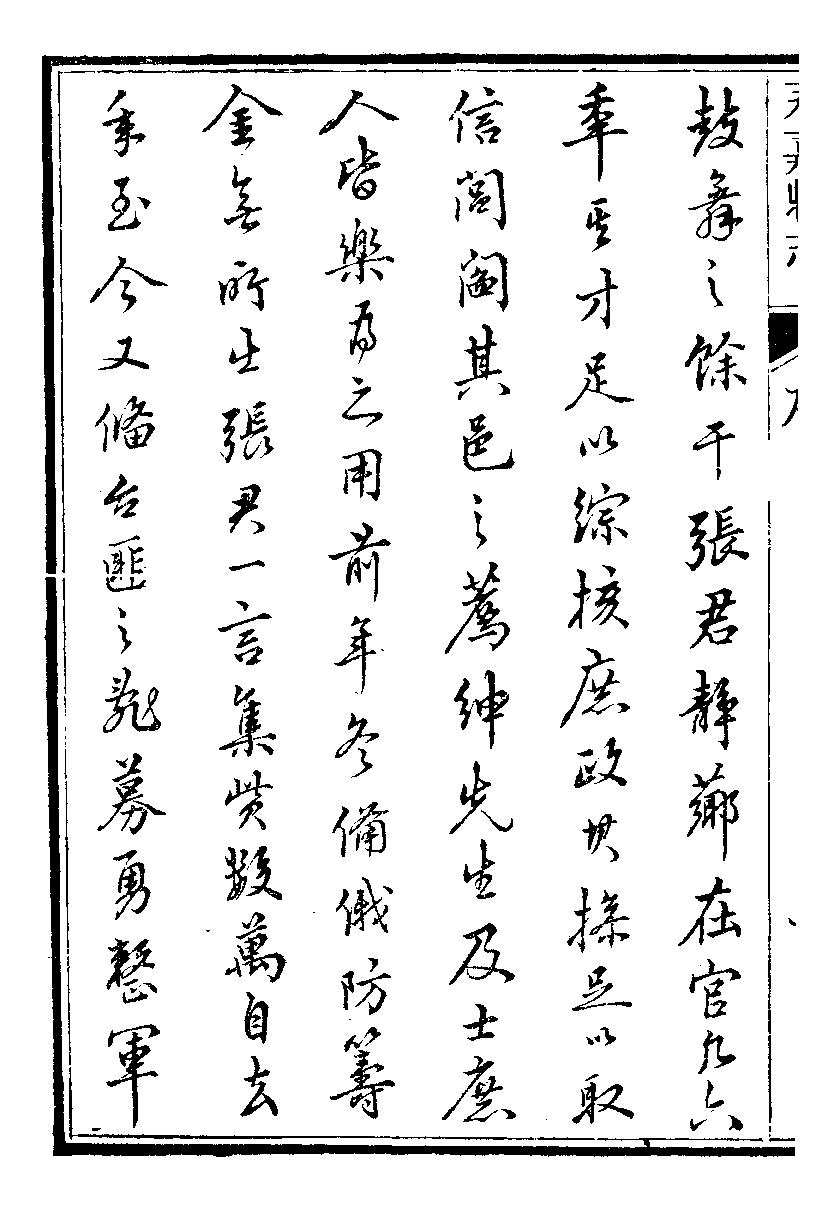 鼓舞之餘干張君靜薌在官凡六
年其才足以綜核庶政其操足以取
信閭閻其邑之薦紳先生及士庶
人皆樂為之用前年冬備俄防籌
金無所出張君一言集貲數萬自去
年至今又俻台匪之亂募勇整軍